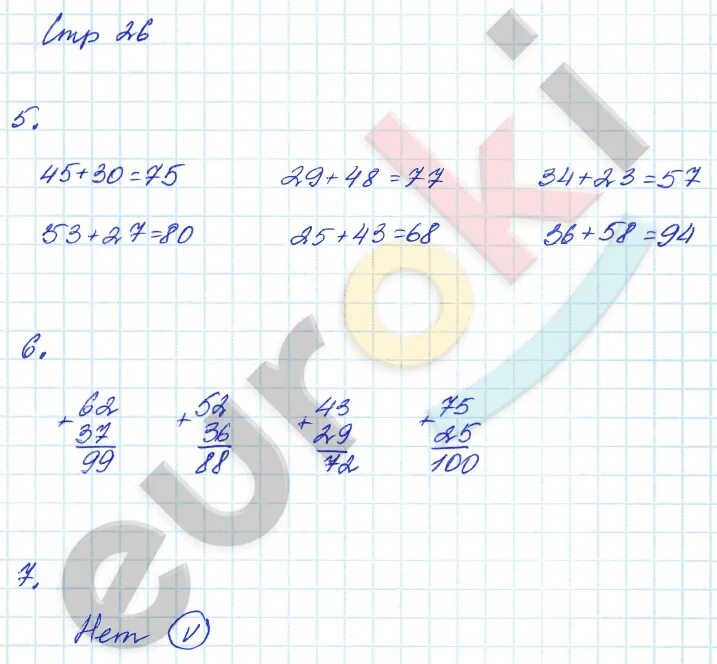 Стр 26
5.
45+30=75 29+48=77 34+23=57
53+27=80 25+43=68 36+58=94
6.
+62 +52 +43 +75
37 36 29 25
99 88 72 100
7.
Нет V
euroki